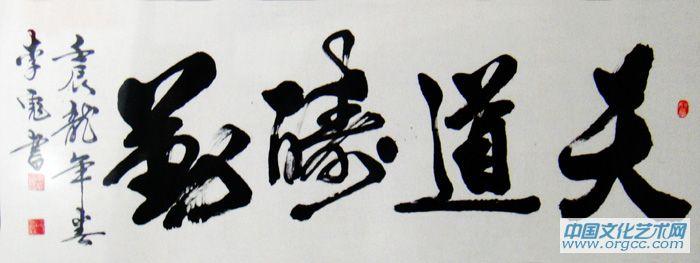 天道酬勤
壬辰龍年春
李彪書
中国文化艺术网
www.orgcc.com